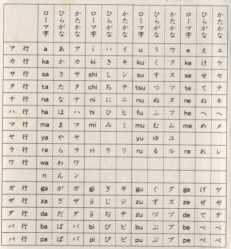 ローマ字 ひらがな かたかな ローマ字 ひらがな かたかな ローマ字 ひらがな かたかな ローマ字 ひらがな かたかな
ア行 a あ ア i い イ u う ウ e え エ
カ行 ka か カ ki き キ ku く ク ke け ケ
サ行 sa さ サ shi し シ su す ス se せ セ
タ行 ta た タ chi ち チ tsu つ ツ te て テ
ナ行 na な ナ ni に ニ nu ぬ ヌ ne ね ネ
ハ行 ha は ハ hi ひ ヒ fu ふ フ he へ ヘ
マ行 ma ま マ mi み ミ mu む ム me め メ
ヤ行 ya や ヤ yu ゆ ユ
ラ行 ra ら ラ ri り リ ru る ル re れ レ
ワ行 wa わ ワ
n ん ン
ガ行 ga が ガ gi ぎ ギ gu ぐ グ ge げ ゲ
ザ行 za ざ ザ ji じ ジ zu ず ズ ze ぜ ゼ
ダ行 da だ ダ ji ぢ ヂ zu づ ヅ de で デ
バ行 ba ば バ bi び ビ bu ぶ ブ be べ ベ
パ行 pa ぱ パ pi ぴ ピ pu ぷ プ pe ぺ ペ